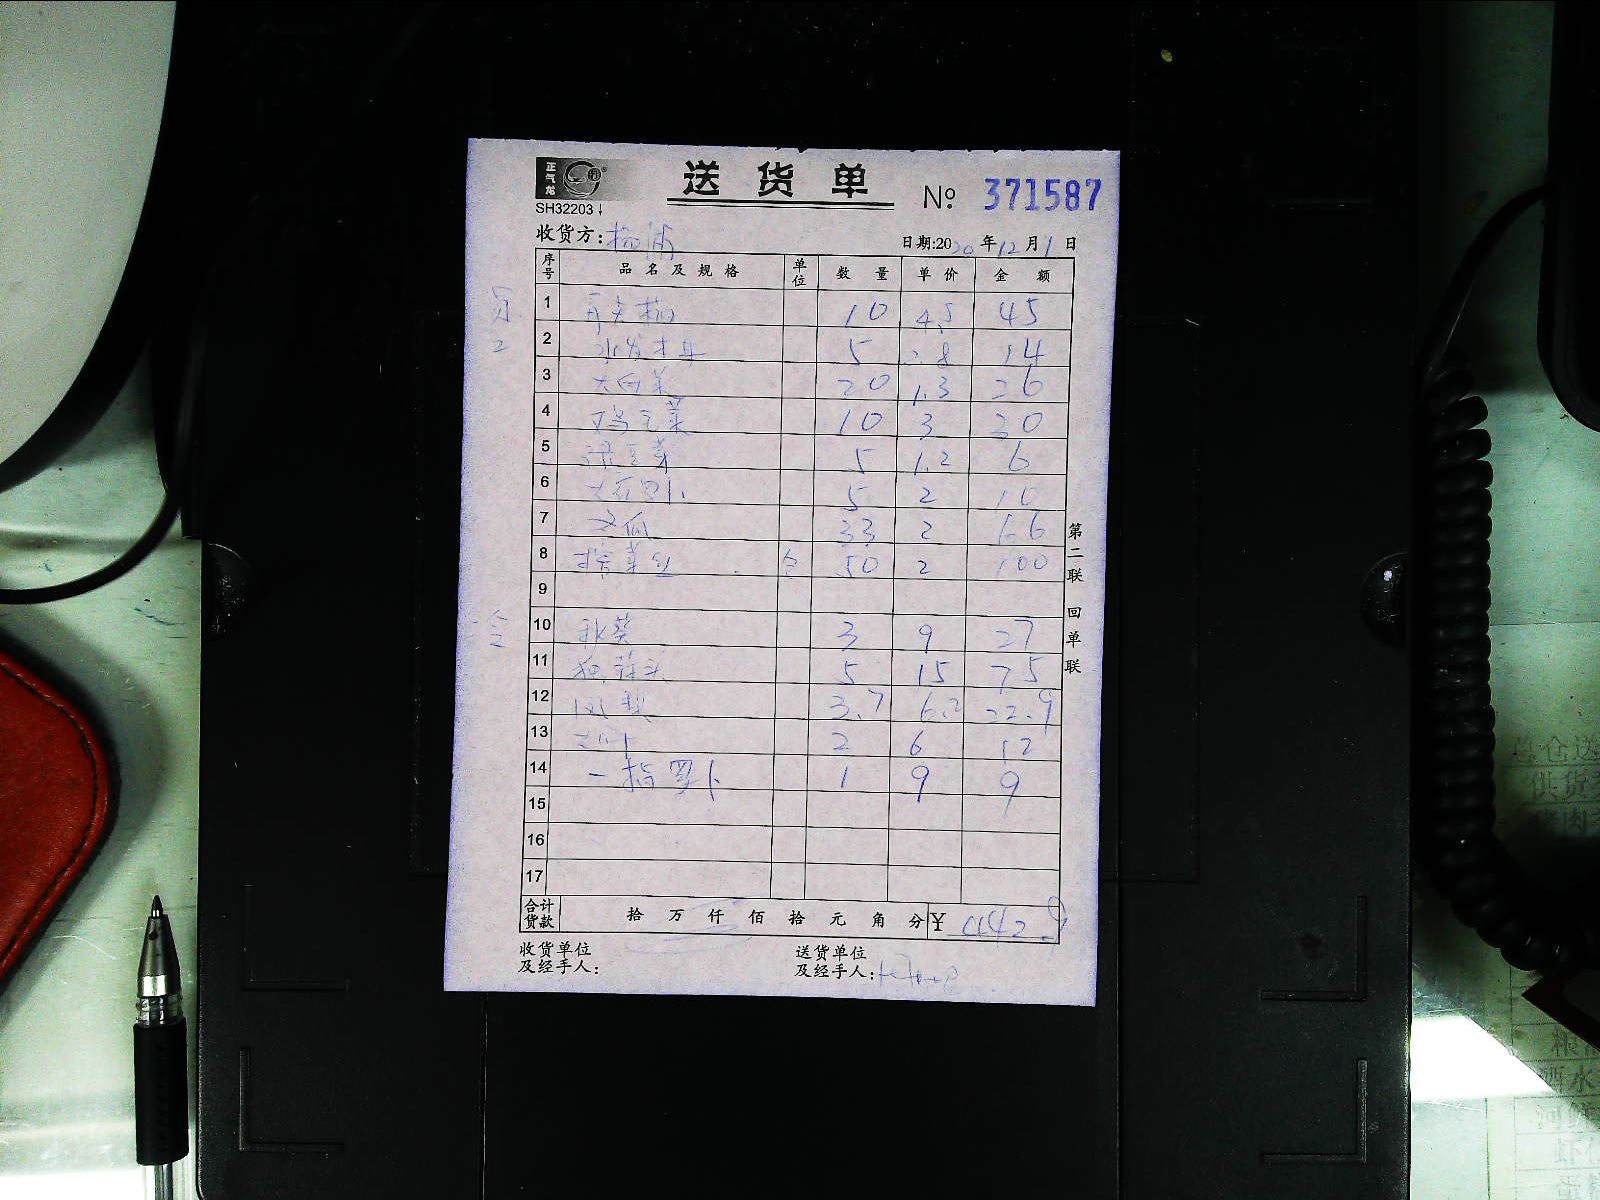 正气龙
送货单 № 371587
SH32203
收货方：杨浦 日期:2020年12月1日
序号 品名及规格 单位 数量 单价 金额
1 10 4.5 45
2 水发木耳 5 2.8 14
3 大白菜 20 1.3 26
4 鸡毛菜 10 3 30
5 绿豆芽 5 1.2 6
6 5 2 10
7 冬瓜 33 2 66
8 榨菜丝 50 2 100
9
10 秋葵 3 9 27
11 独蒜头 5 15 75
12 凤梨 3.7 6.2 22.9
13 2 6 12
14 一指萝卜 1 9 9
15
16
17
合计货款 拾 万 仟 佰 拾 元 角 分 ¥ 442.9
收货单位及经手人：
送货单位及经手人：
第二联 回单联
盘仓送
供货
猪肉
粮
酒水
河鲜
虾